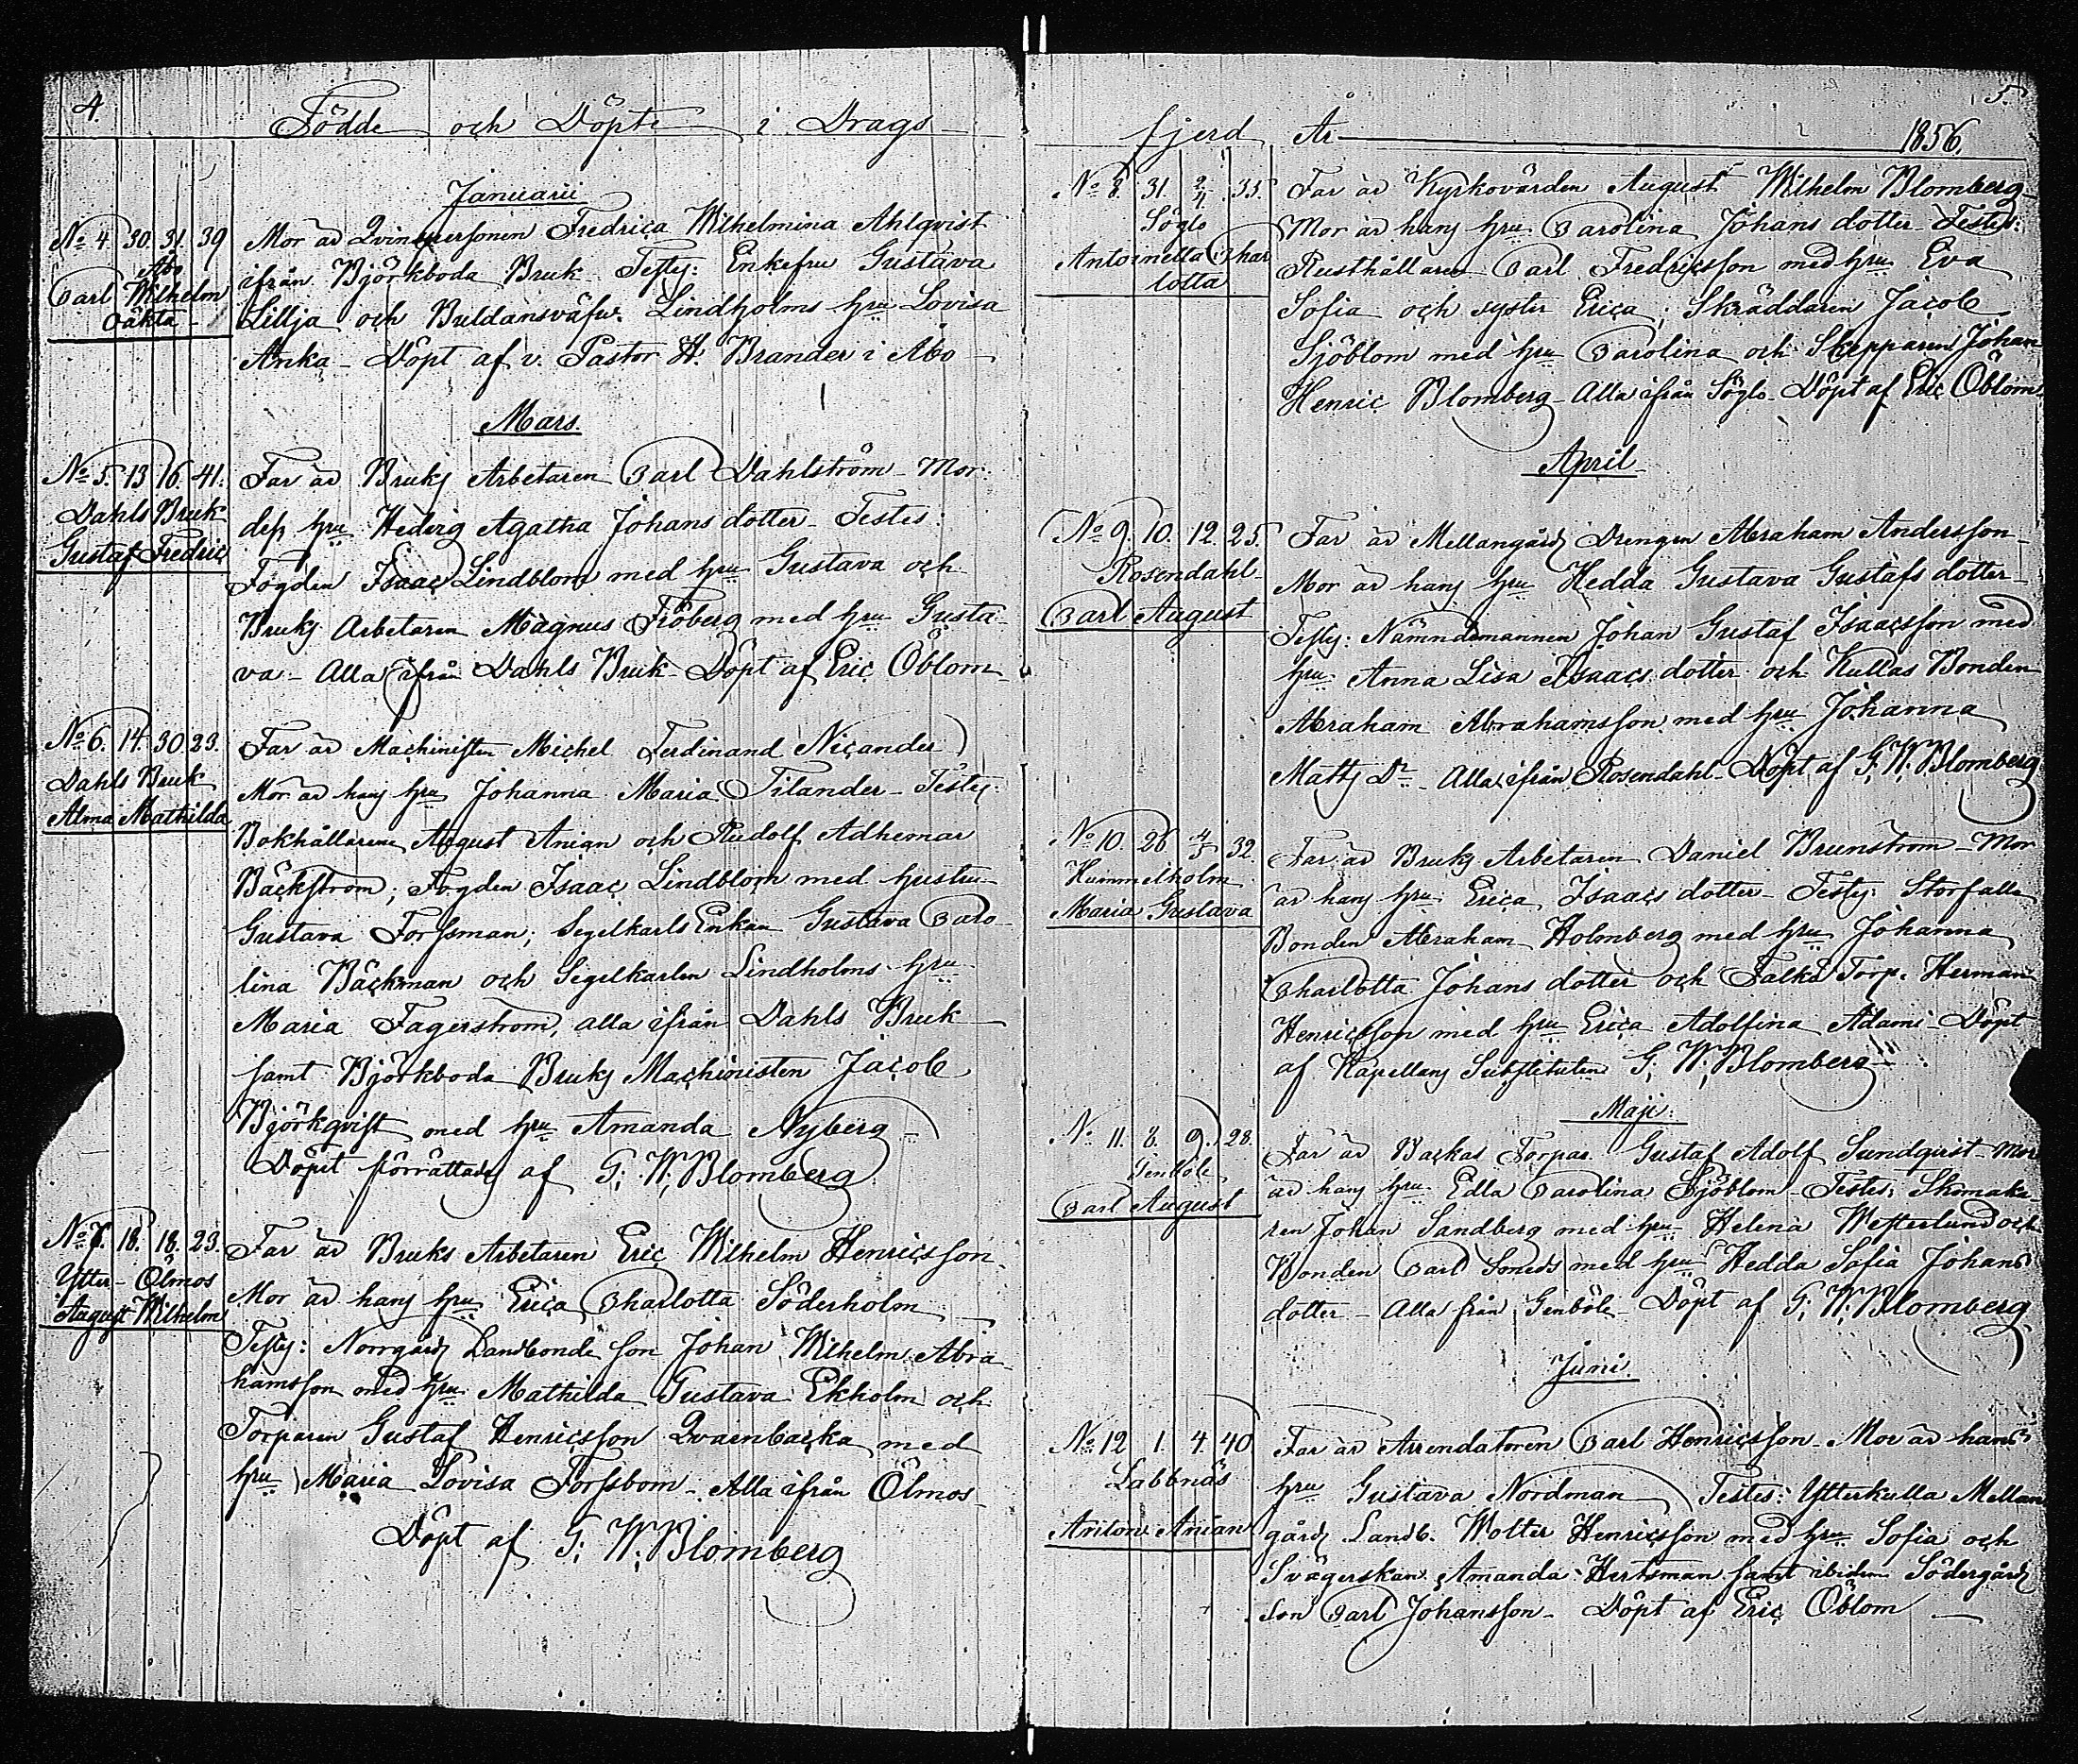 4.
Födde och Döpte i Drags-
Januarii
No 4. 30. 31. 39
Åbo
Carl Wilhelm
oäkta
Mor är Qvinspersonen Fredrica Wilhelmina Ahlqvist
ifrån Björkboda Bruk. Testes: Enkefru Gustava
Lillja och Buldansväfv. Lindholms hru Lovisa
Anka - Döpt af v. Pastor H. Brander i Åbo
Mars.
No 5. 13 16. 41.
Dahls Bruk
Gustaf Fredric
Far är Bruks Arbetaren Carl Dahlström - Mor:
dess hru Hedvig Agatha Johans dotter - Testes:
Fogden Isaac Lindblom med hru Gustava och
Bruks Arbetaren Magnus Fröberg med hru Gusta-
va - Alla ifrån Dahls Bruk - Döpt af Eric Öblom
No 6. 14. 30. 23.
Dahls Bruk
Alma Mathilda
Far är Machinisten Michel Ferdinand Nicander
Mor är hans hru Johanna Maria Tilander - Testes:
Bokhållarene August Anian och Rudolf Adhemar
Bäckström; Fogden Isaac Lindblom med hustru
Gustava Forssman; Segelkarls Enkan Gustava Caro-
lina Bäckman och Segelkarlen Lindholms hru
Maria Fagerström, alla ifrån Dahls Bruk
samt Björkboda Bruks Machinisten Jacob
Björkqvist med hru Amanda Nyberg -
Döpet förrättades af G. W. Blomberg
No 7. 18. 18. 23.
Ytter-Ölmos
August Wilhelm
Far är Bruks Arbetaren Eric Wilhelm Henricsson
Mor är hans hru Erica Charlotta Söderholm
Testes: Norrgårds Landbonde son Johan Wilhelm Abra-
hamsson med hru Mathilda Gustava Ekholm och
Torparen Gustaf Henricsson Qvarnbacka med
hru Maria Lovisa Forssbom - Alla ifrån Ölmos -
Döpt af G. W. Blomberg
5.
fjerd År 1856.
No 8. 31. 2/4. 33.
Söglo
Antoinetta Char
lotta
Far är Kyrkovärden August Wilhelm Blomberg
Mor är hans hru Carolina Johans dotter - Testes:
Rusthållaren Carl Fredricsson med hru Eva
Sofia och syster Erica; Skräddaren Jacob
Sjöblom med hru Carolina och Skepparen Johan
Henric Blomberg - Alla ifrån Söglo - Döpt af Eric Öblom.
April
No 9. 10. 12. 25.
Rosendahl
Carl August
Far är Mellangårds Drengen Abraham Andersson -
Mor är hans hru Hedda Gustava Gustafs dotter -
Testes: Nämndemannen Johan Gustaf Isaacsson med
hru Anna Lisa Isaacs dotter och Kullas Bonden
Abraham Abrahamsson med hru Johanna
Matts Dr - Alla ifrån Rosendahl - Döpt af G. W. Blomberg
No 10. 26 4/5 32.
Hummelholm
Maria Gustava
Far är Bruks Arbetaren Daniel Brunström - Mor
är hans hru Erica Isaacs dotter - Testes: Storfalla
Bonden Abraham Holmberg med hru Johanna
Charlotta Johans dotter och Falkö Torp. Herman
Henricsson med hru Erica Adolfina Adami - Döpt
af Kapellans Substituten G. W. Blomberg -
Maji:
No 11. 8. 9. 28.
Genböle
Carl August
Far är Backas Torpar. Gustaf Adolf Sundqvist - Mor
är hans hru Edla Carolina Sjöblom - Testes: Skomaka-
ren Johan Sandberg med hru Helena Westerlund och
Bonden Carl Smeds med hru Hedda Sofia Johans
dotter - Alla från Genböle - Döpt af G. W. Blomberg
Juni.
No 12 1. 4. 40.
Labbnäs
Anton Anian
Far är Arrendatoren Carl Henricsson - Mor är hans
hru Gustava Nordman Testes: Ytterkulla Mellan
gårds Landb. Wolter Henricsson med hru Sofia och
Svägerskan Amanda Hertsman samt ibidem Södergårds
son Carl Johansson - Döpt af Eric Öblom -